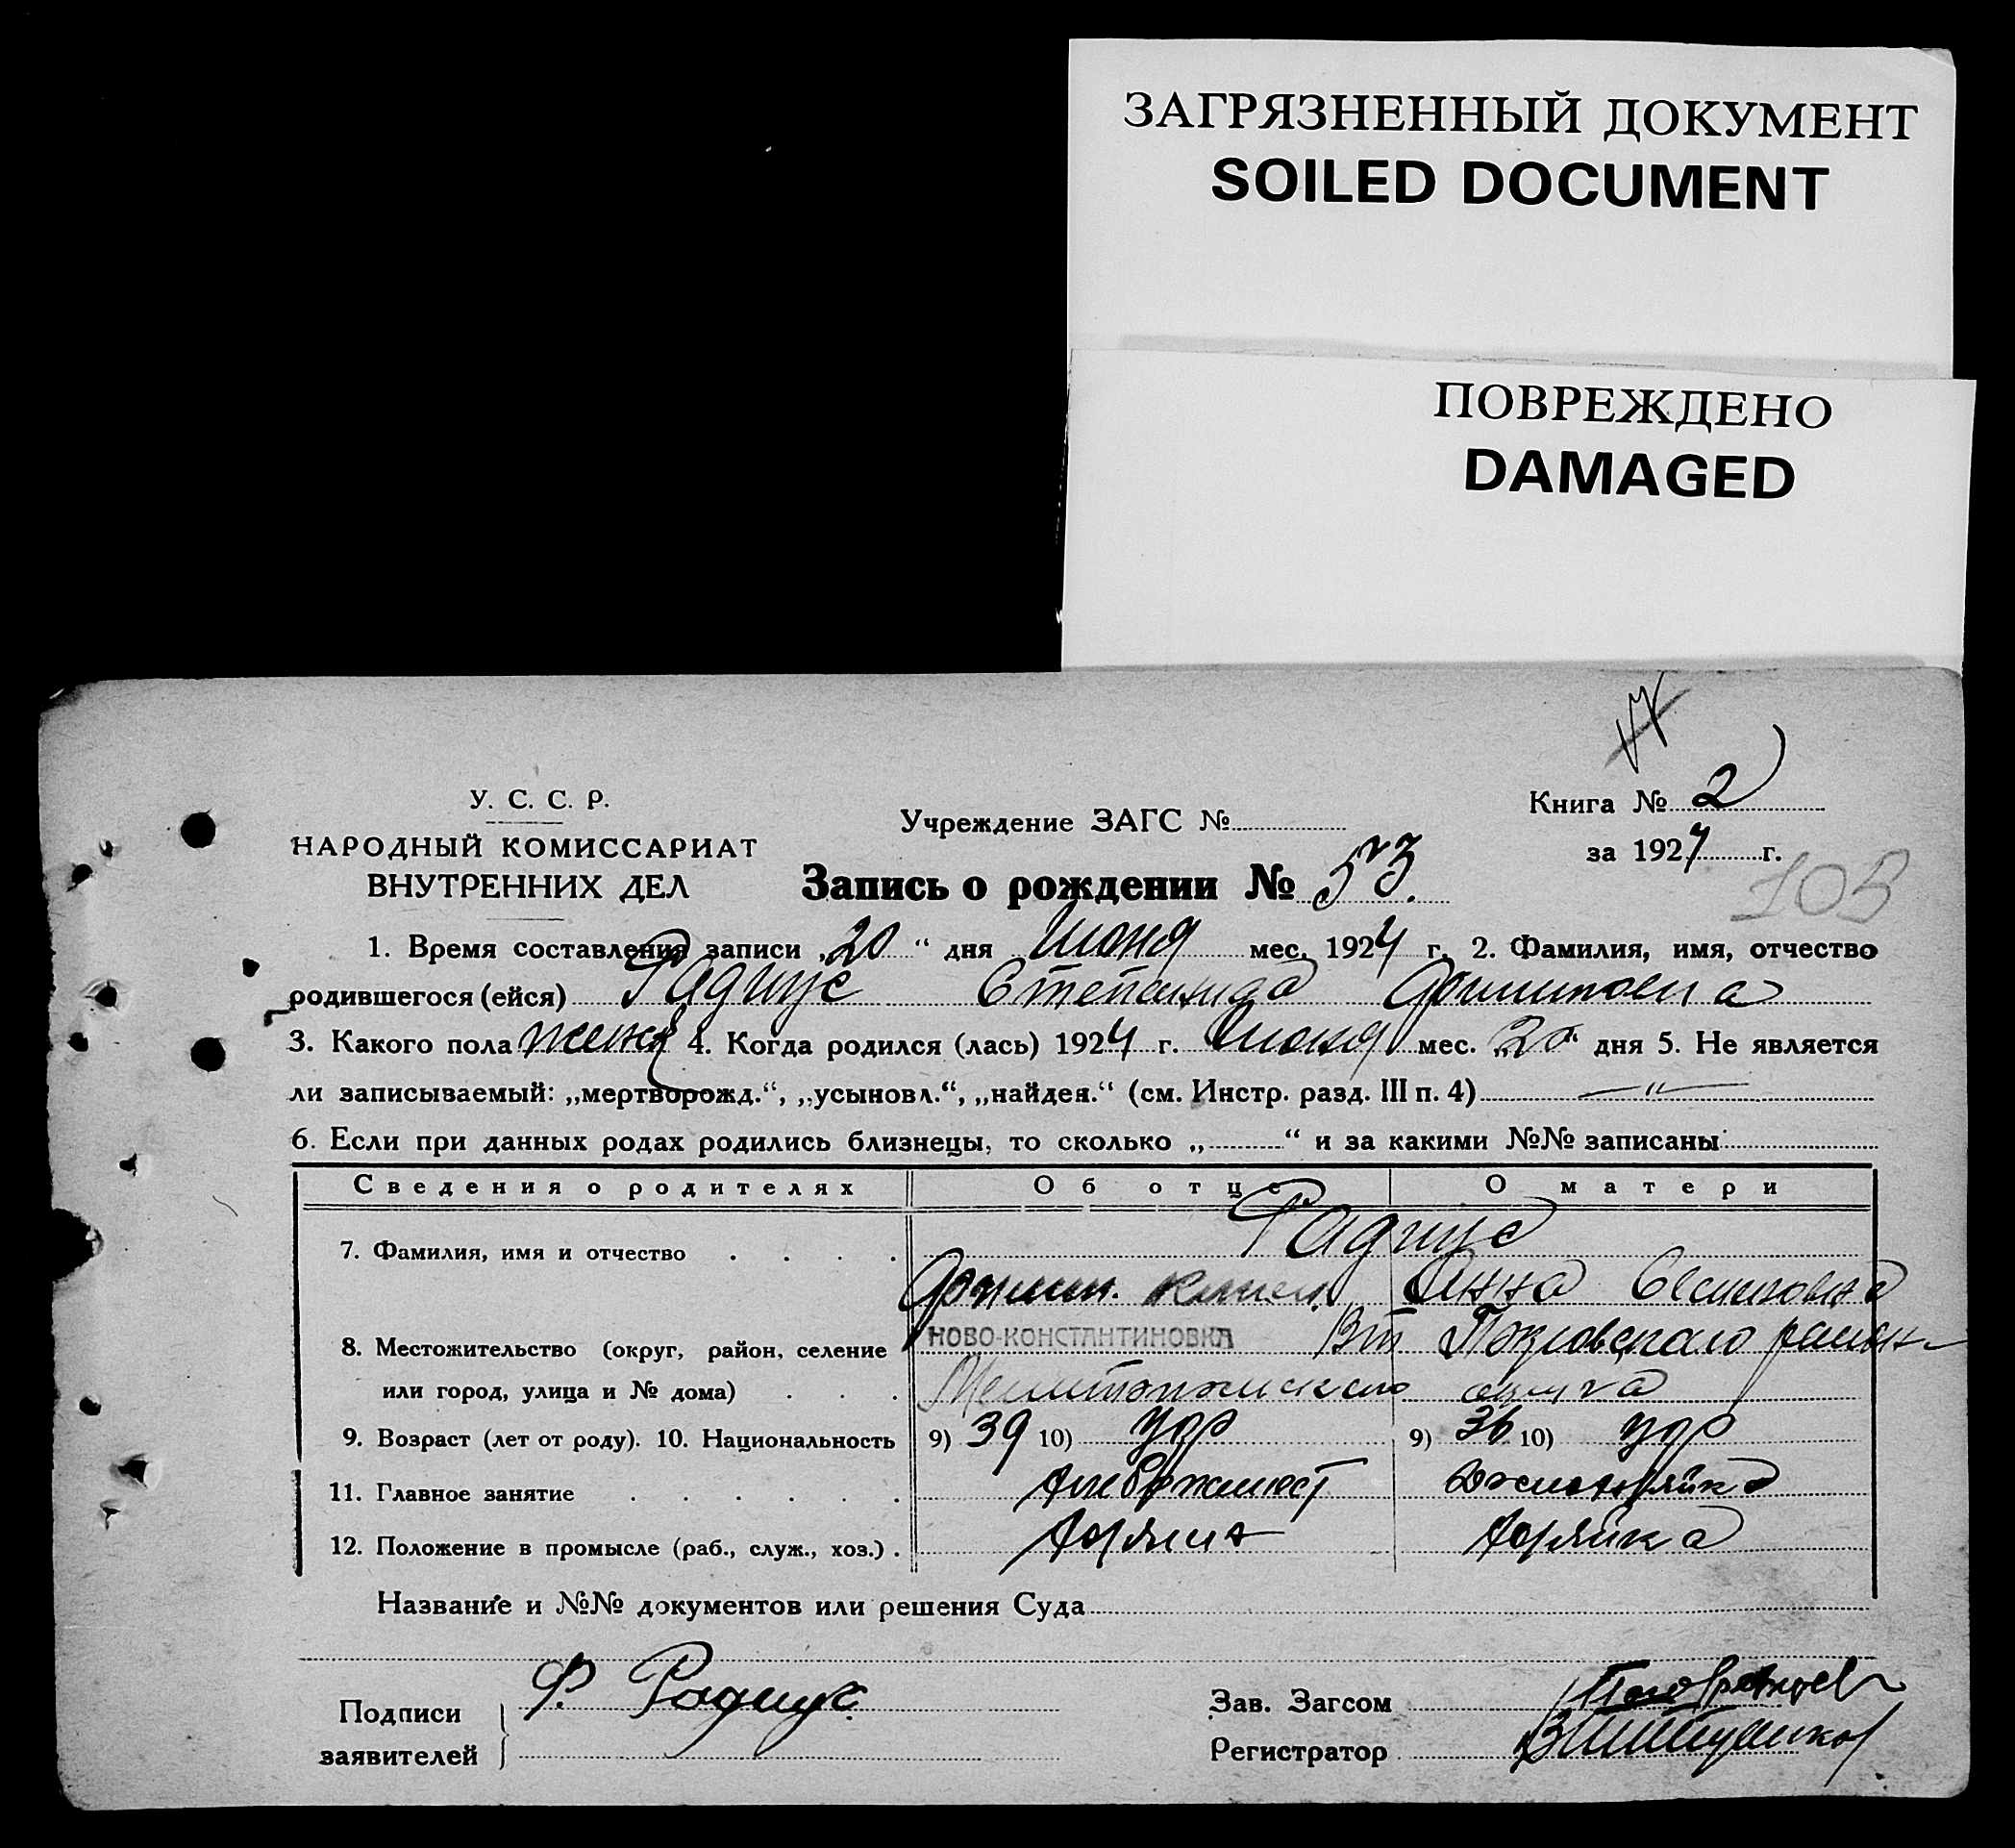 ЗАГРЯЗНЕННЫЙ ДОКУМЕНТ
SOILED DOCUMENT
ПОВРЕЖДЕНО
DAMAGED
17
У. С. С. Р.
НАРОДНЫЙ КОМИССАРИАТ
ВНУТРЕННИХ ДЕЛ
Учреждение ЗАГС №
Книга № 2
за 1924 г.
Запись о рождении № 53.
103
1. Время составления записи „20“ дня Июня мес. 1924 г. 2. Фамилия, имя, отчество
родившегося (ейся) Радчус Степанида
3. Какого пола женск 4. Когда родился (лась) 1924 г. Июня мес. „20“ дня 5. Не является
ли записываемый: „мертворожд.“, „усыновл.“, „найден.“ (см. Инстр. разд. III п. 4) — „ —
6. Если при данных родах родились близнецы, то сколько „ “ и за какими №№ записаны
Сведения о родителях Об отце О матери
7. Фамилия, имя и отчество Радчус
Анна Осиповна
8. Местожительство (округ, район, селение НОВО-КОНСТАНТИНОВКА Покровского район
или город, улица и № дома) Мелитопольского округа
9. Возраст (лет от роду). 10. Национальность 9) 39 10) укр 9) 36 10) укр
11. Главное занятие
12. Положение в промысле (раб., служ., хоз.)
Название и №№ документов или решения Суда
Подписи заявителей Ф. Радчус
Зав. Загсом
Регистратор